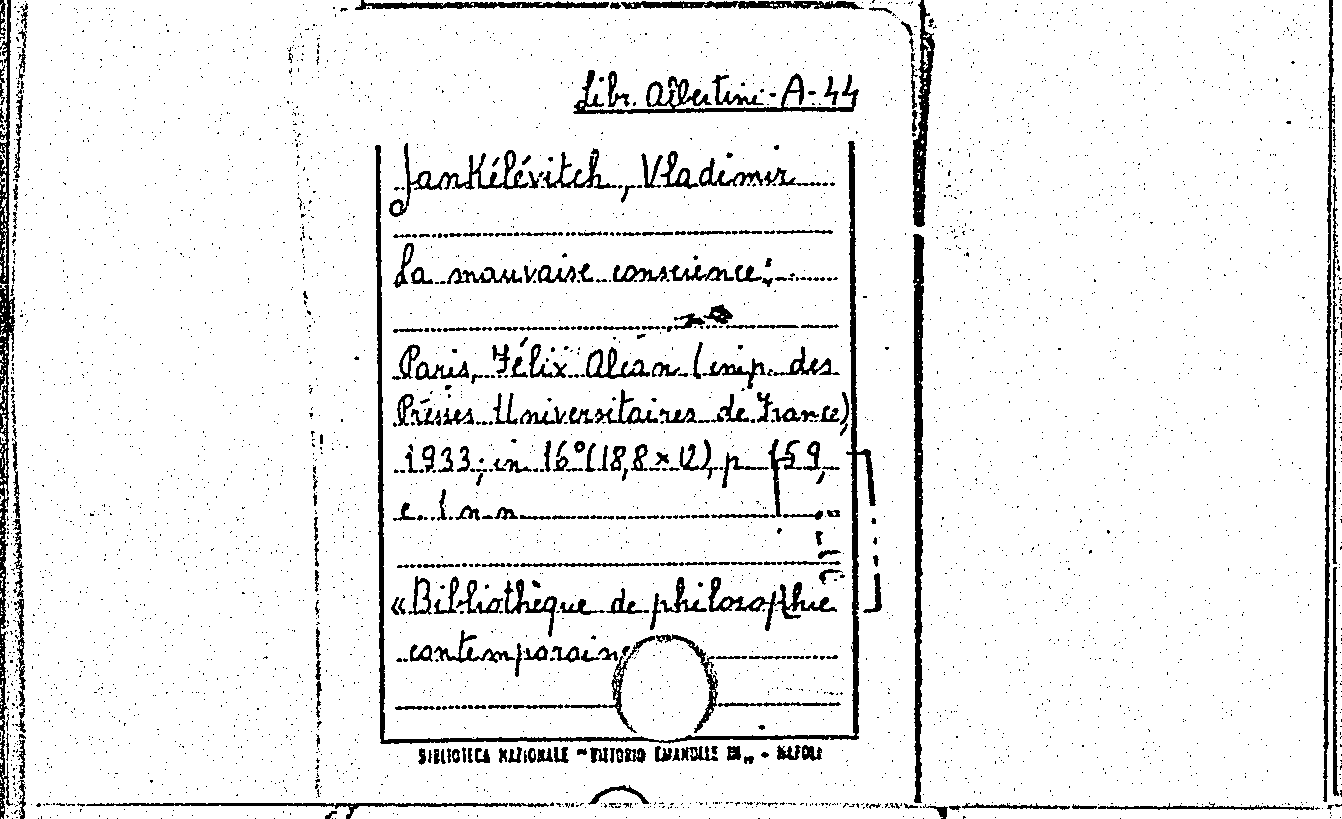 Libr. Albertini - A - 44
Jankélévitch, Vladimir
La mauvaise conscience;
Paris, Félix Alcan (imp. des
Presses Universitaires de France),
1933; in 16° (18,8 x 12), p. 159,
c. 1 n. n.
«Bibliothèque de philosophie
contemporaine
BIBLIOTECA NAZIONALE "VITTORIO EMANUELE III„ - NAPOLI